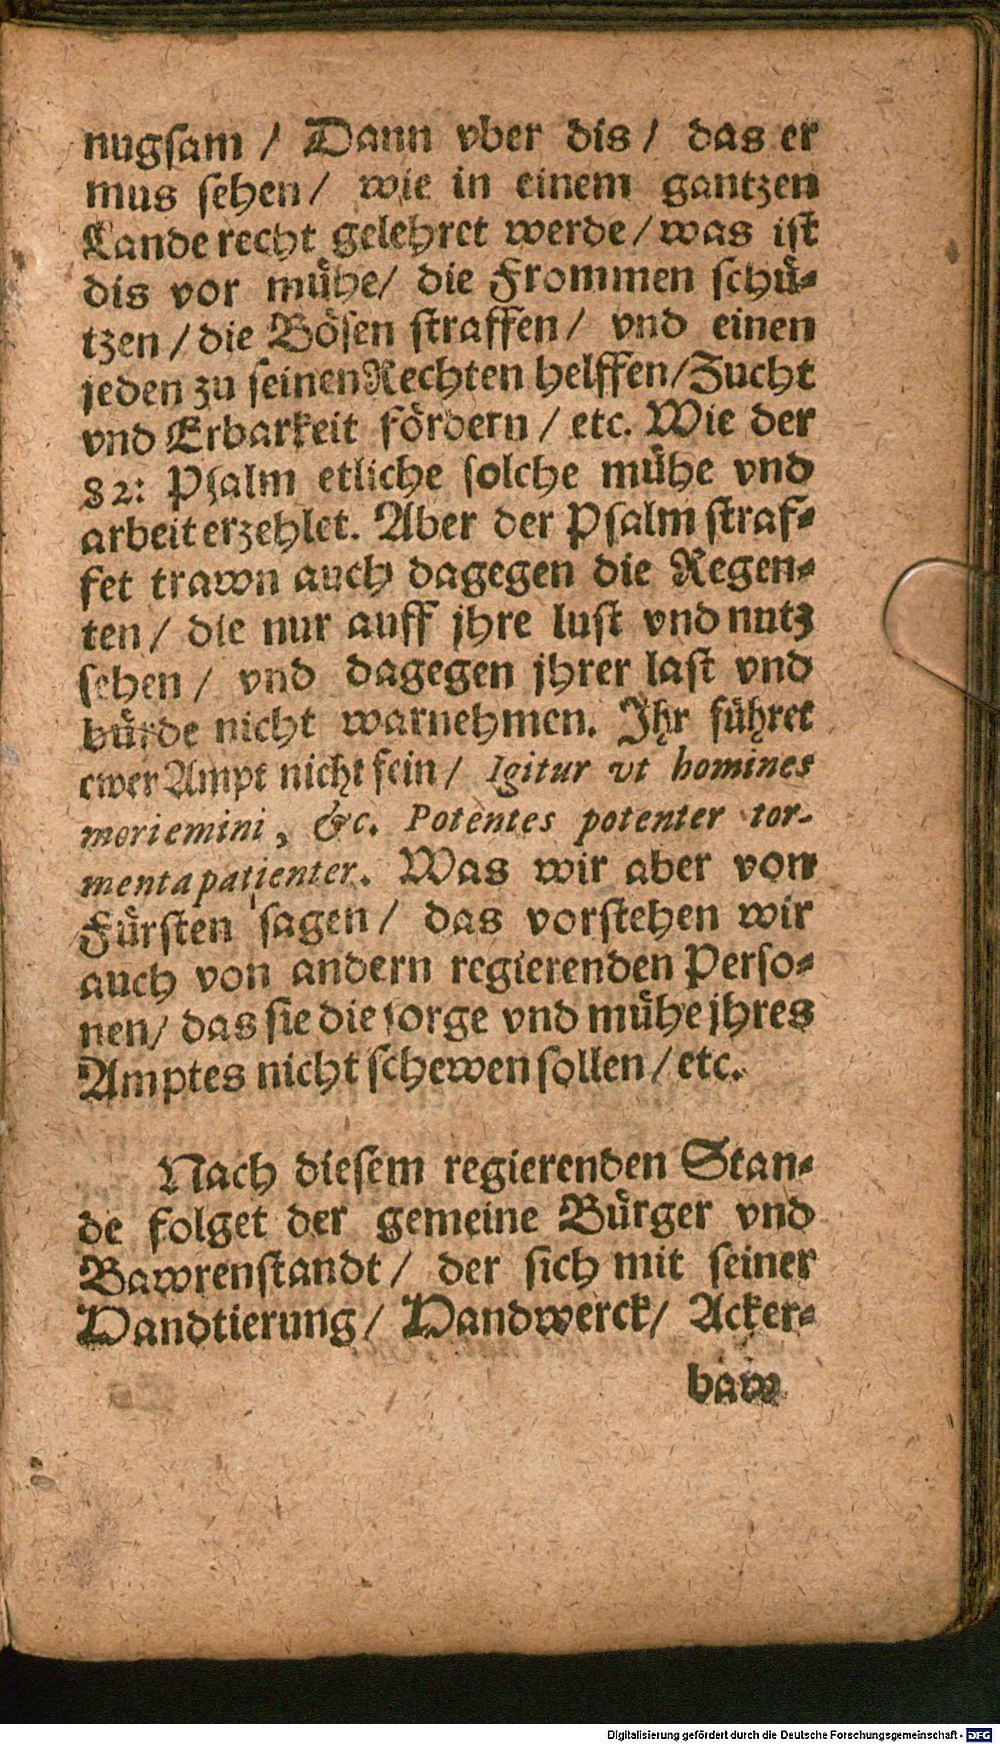 nugsam / Dann vber dis / das er
mus sehen / wie in einem gantzen
Lande recht gelehret werde / was ist
dis vor mühe / die Frommen schü-
tzen / die Bösen straffen / vnd einen
jeden zu seinen Rechten helffen / Zucht
vnd Erbarkeit fördern / etc. Wie der
82: Psalm etliche solche mühe vnd
arbeit erzehlet. Aber der Psalm straf-
fet trawn auch dagegen die Regen-
ten / die nur auff jhre lust vnd nutz
sehen / vnd dagegen jhrer last vnd
bürde nicht warnehmen. Ihr führet
ewer Ampt nicht fein / Igitur vt homines
moriemini, &c. Potentes potenter tor-
menta patienter. Was wir aber von
Fürsten sagen / das vorstehen wir
auch von andern regierenden Perso-
nen / das sie die sorge vnd mühe jhres
Amptes nicht schewen sollen / etc.
Nach diesem regierenden Stan-
de folget der gemeine Bürger vnd
Bawrenstandt / der sich mit seiner
Handtierung / Handwerck / Acker-
baw
Digitalisierung gefördert durch die Deutsche Forschungsgemeinschaft - DFG